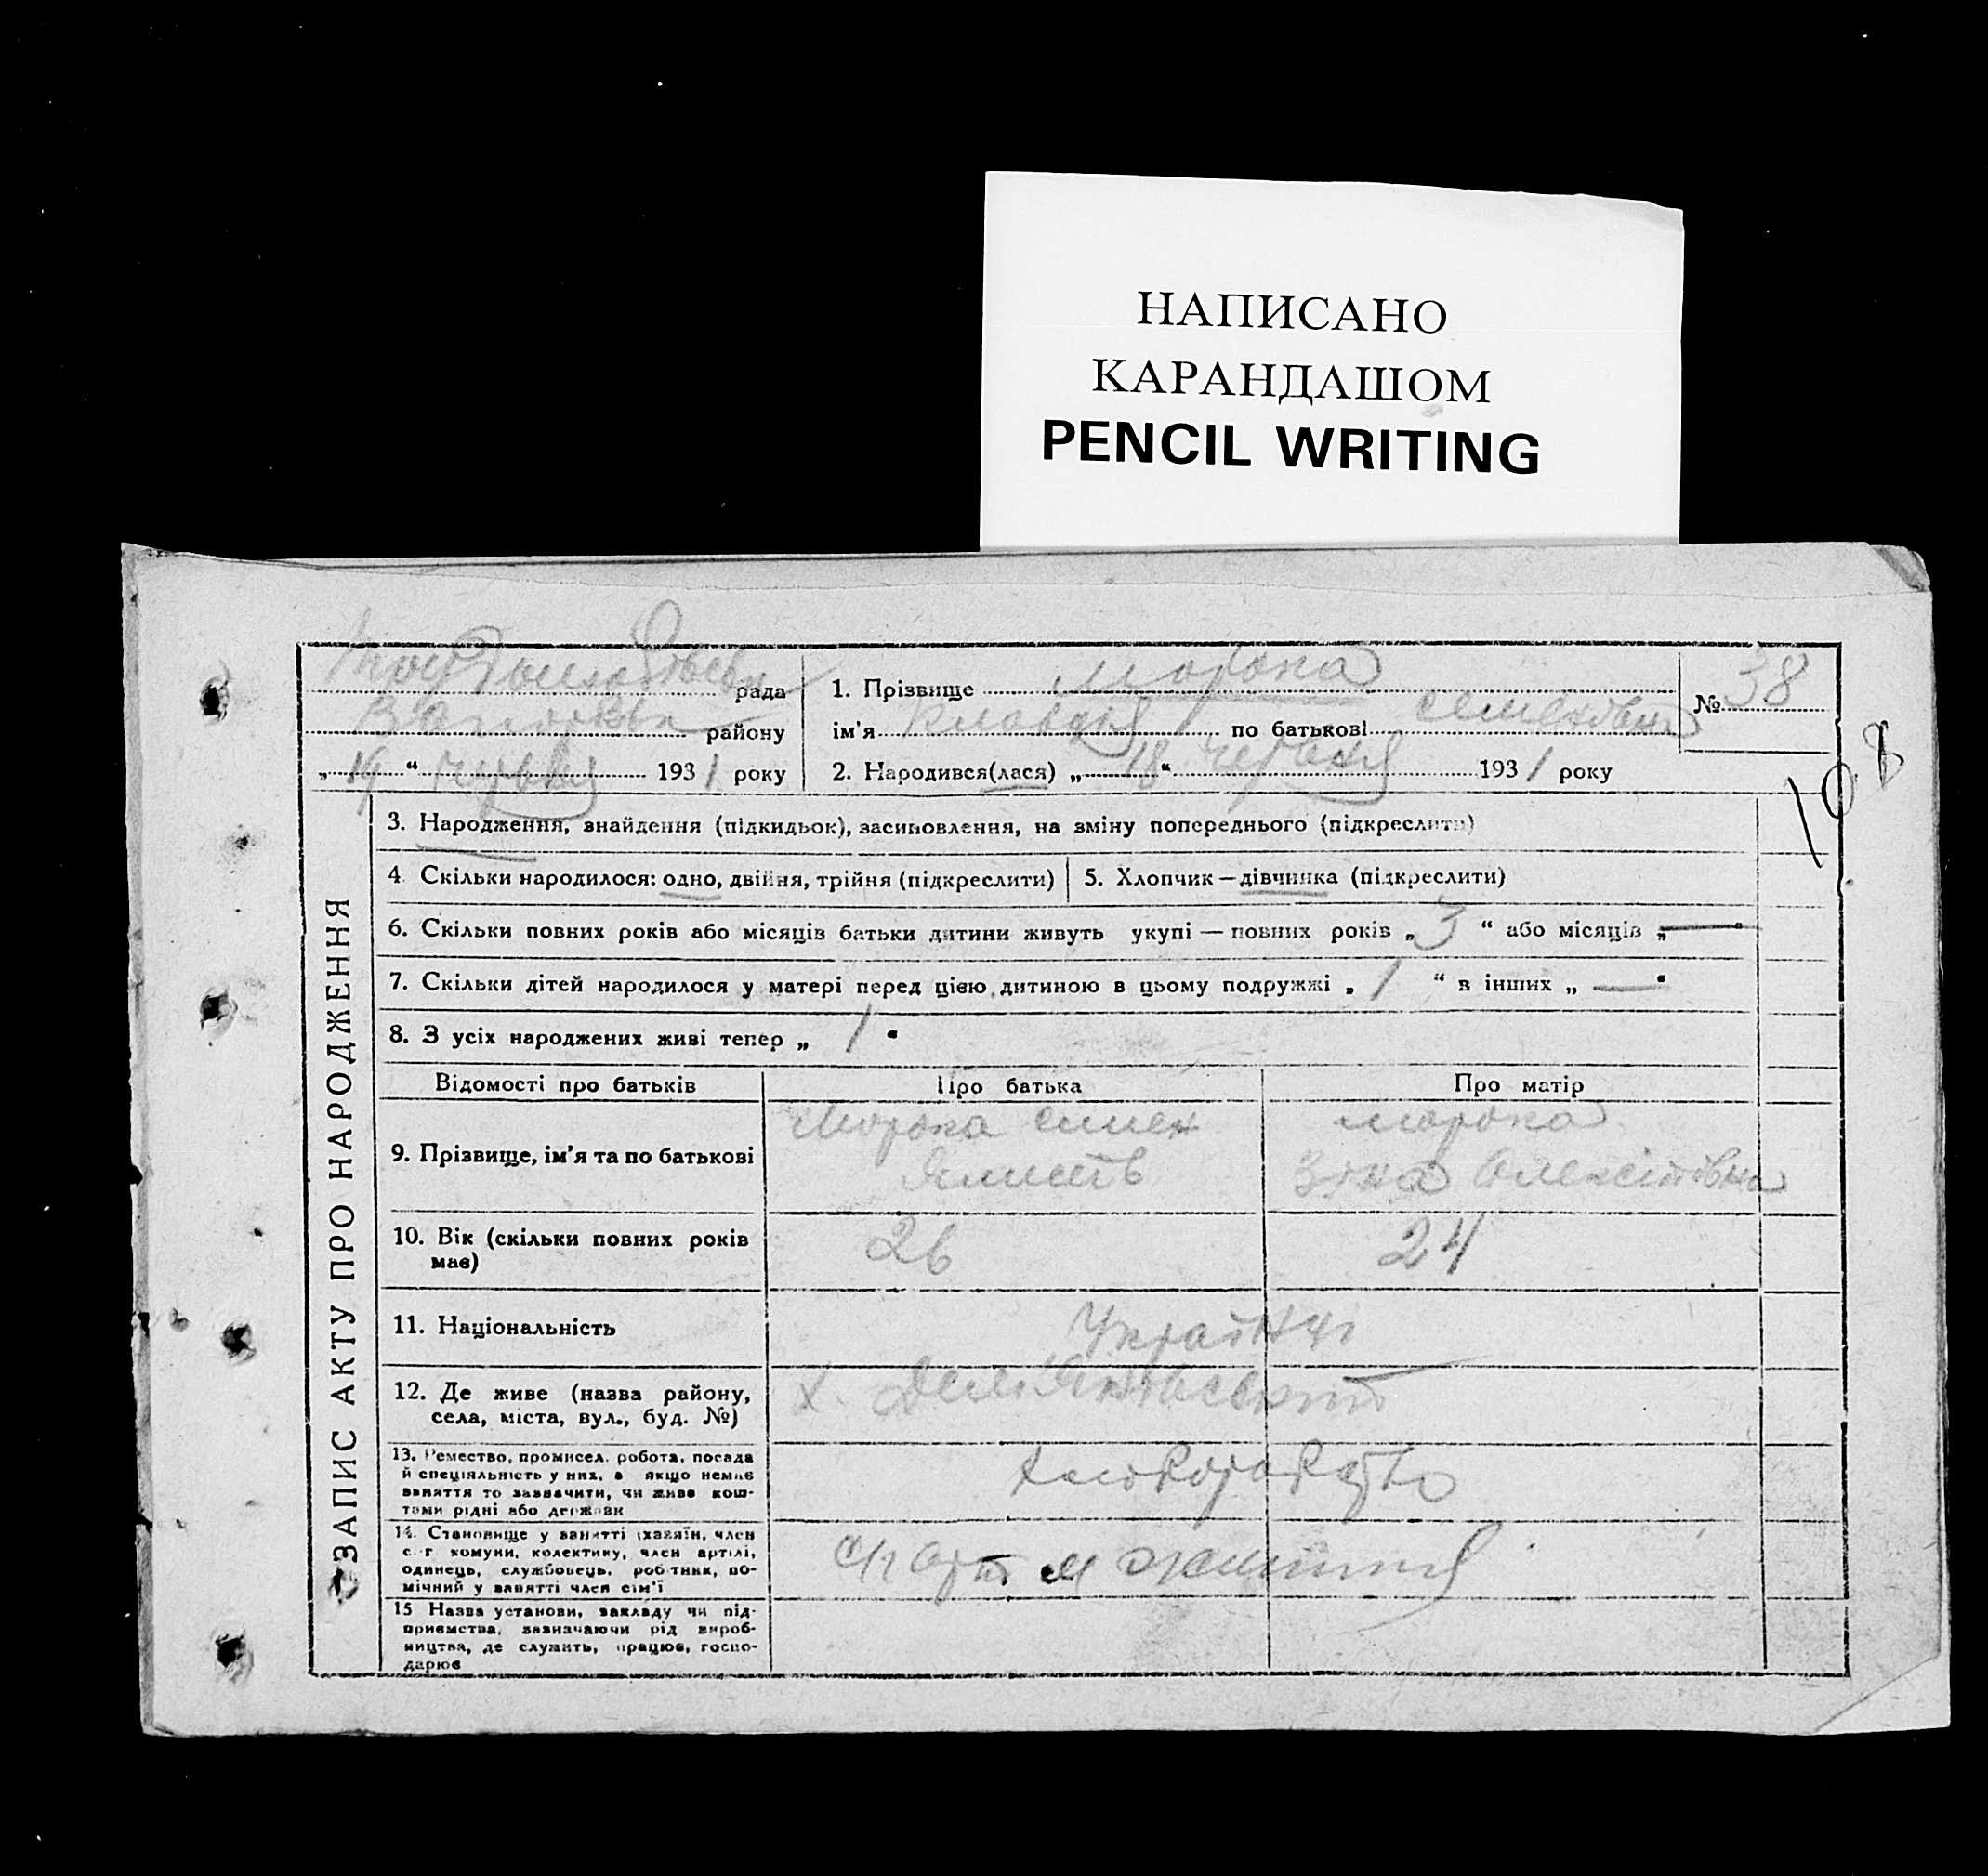 НАПИСАНО
КАРАНДАШОМ
PENCIL WRITING
рада
району
„ 19 “ червня 1931 року
1. Прізвище Морока
ім'я Клавдія по батькові Семенівна
2. Народився(лася) „ 18 “ червня 1931 року
№ 38
108
ЗАПИС АКТУ ПРО НАРОДЖЕННЯ
3. Народження, знайдення (підкидьок), засиновлення, на зміну попереднього (підкреслити)
4. Скільки народилося: одно, двійня, трійня (підкреслити)
5. Хлопчик — дівчинка (підкреслити)
6. Скільки повних років або місяців батьки дитини живуть укупі — повних років „ 3 “ або місяців „ — “
7. Скільки дітей народилося у матері перед цією дитиною в цьому подружжі „ 1 “ в інших „ — “
8. З усіх народжених живі тепер „ 1 “
Відомості про батьків
Про батька
Про матір
9. Прізвище, ім'я та по батькові
Морока Семен
Морока
10. Вік (скільки повних років
має)
26
24
11. Національність
Українці
12. Де живе (назва району,
села, міста, вул., буд. №)
х.
13. Ремество, промисел. робота, посада
й спеціяльність у них, а якщо немає
заняття то зазначити, чи живе кош-
тами рідні або держави
Хліборобство
14. Становище у занятті (хазяїн, член
с.-г. комуни, колективу, член артілі,
одинець, службовець, робітник, по-
мічний у занятті член сім'ї
15 Назва установи, закладу чи під-
приємства, зазначаючи рід вироб-
ництва, де служить, працює, госпо-
дарює